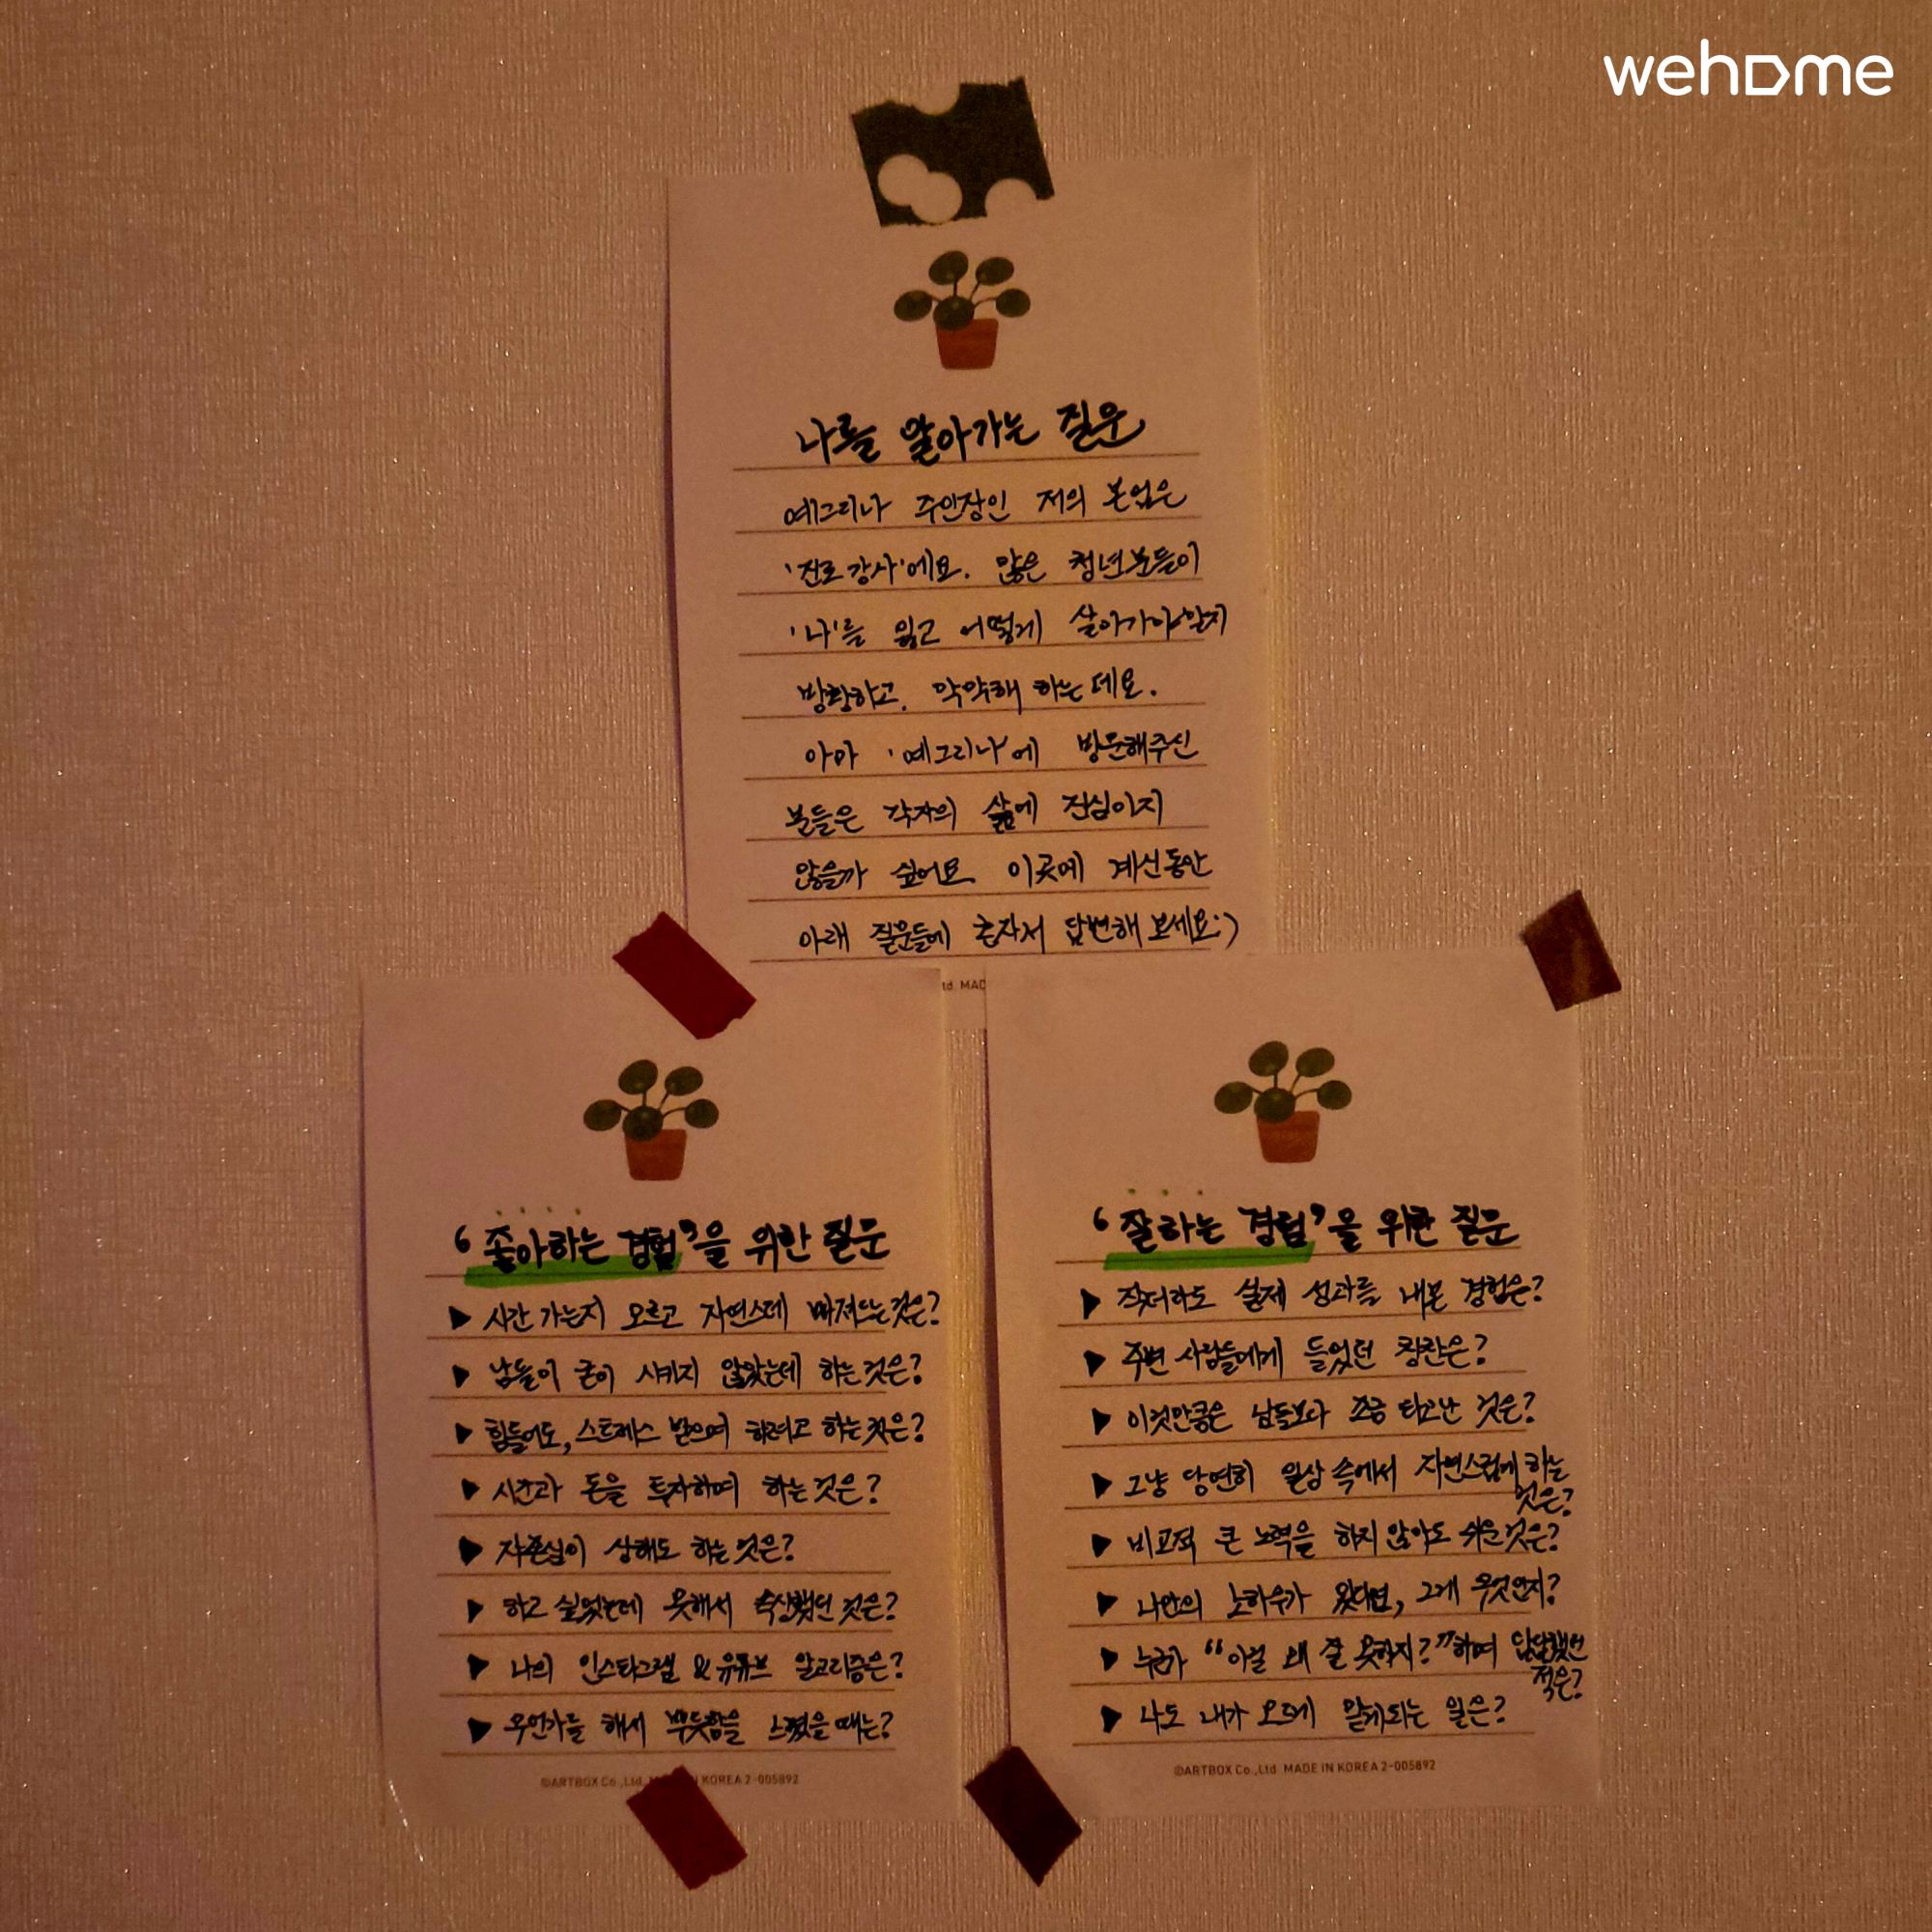 wehome
나를 알아가는 질문
예그리나 주인장인 저의 본업은
'진로 강사'에요. 많은 청년분들이
'나'를 잃고 어떻게 살아가야할지
방황하고, 막막해 하는데요.
아마 '예그리나'에 방문해주신
분들은 각자의 삶에 진심이지
않을까 싶어요. 이곳에 계신동안
아래 질문들에 혼자서 답변해 보세요:)
td. MAD
'좋아하는 경험'을 위한 질문
▶ 시간 가는지 모르고 자연스레 빠져드는 것은?
▶ 남들이 굳이 시키지 않았는데 하는 것은?
▶ 힘들어도, 스트레스 받으며 하려고 하는 것은?
▶ 시간과 돈을 투자하며 하는 것은?
▶ 자존심이 상해도 하는 것은?
▶ 하고 싶었는데 못해서 속상했던 것은?
▶ 나의 인스타그램 & 유튜브 알고리즘은?
▶ 무언가를 해서 뿌듯함을 느꼈을 때는?
©ARTBOX Co.,Ltd. KOREA 2-005892
'잘하는 경험'을 위한 질문
▶ 작더라도 실제 성과를 내본 경험은?
▶ 주변 사람들에게 들었던 칭찬은?
▶ 이것만큼은 남들보다 조금 타고난 것은?
▶ 그냥 당연히 일상 속에서 자연스럽게 하는
것은?
▶ 비교적 큰 노력을 하지 않아도 쉬운 것은?
▶ 나만의 노하우가 있다면, 그게 무엇인지?
▶ 누군가 "이걸 왜 잘 못하지?"하며 답답했던
적은?
▶ 나도 내가 모르게 맡게되는 일은?
©ARTBOX Co.,Ltd MADE IN KOREA 2-005892